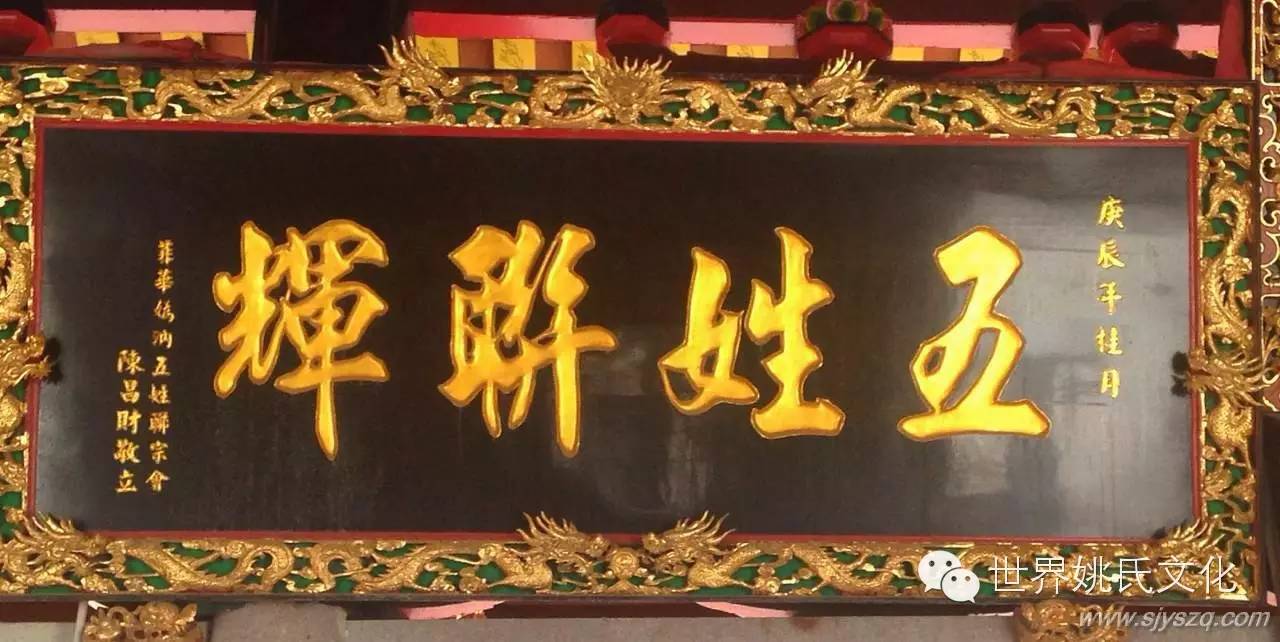 庚辰年桂月
五姓聯輝
菲華媯汭五姓聯宗會
陳昌財敬立
世界姚氏文化
www.sjyszq.com